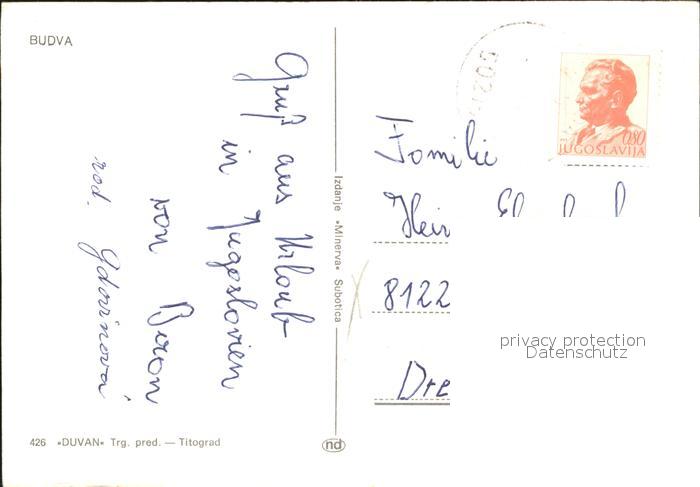 BUDVA
Gruß aus Urlaub
in Jugoslovien
von Biron
rod. Gdovinová
426 »DUVAN« Trg. pred. — Titograd
Izdanje »Minerva« Subotica
nd
0,80
JUGOSLAVIJA
Familie
Heir
8122
Dre
privacy protection
Datenschutz